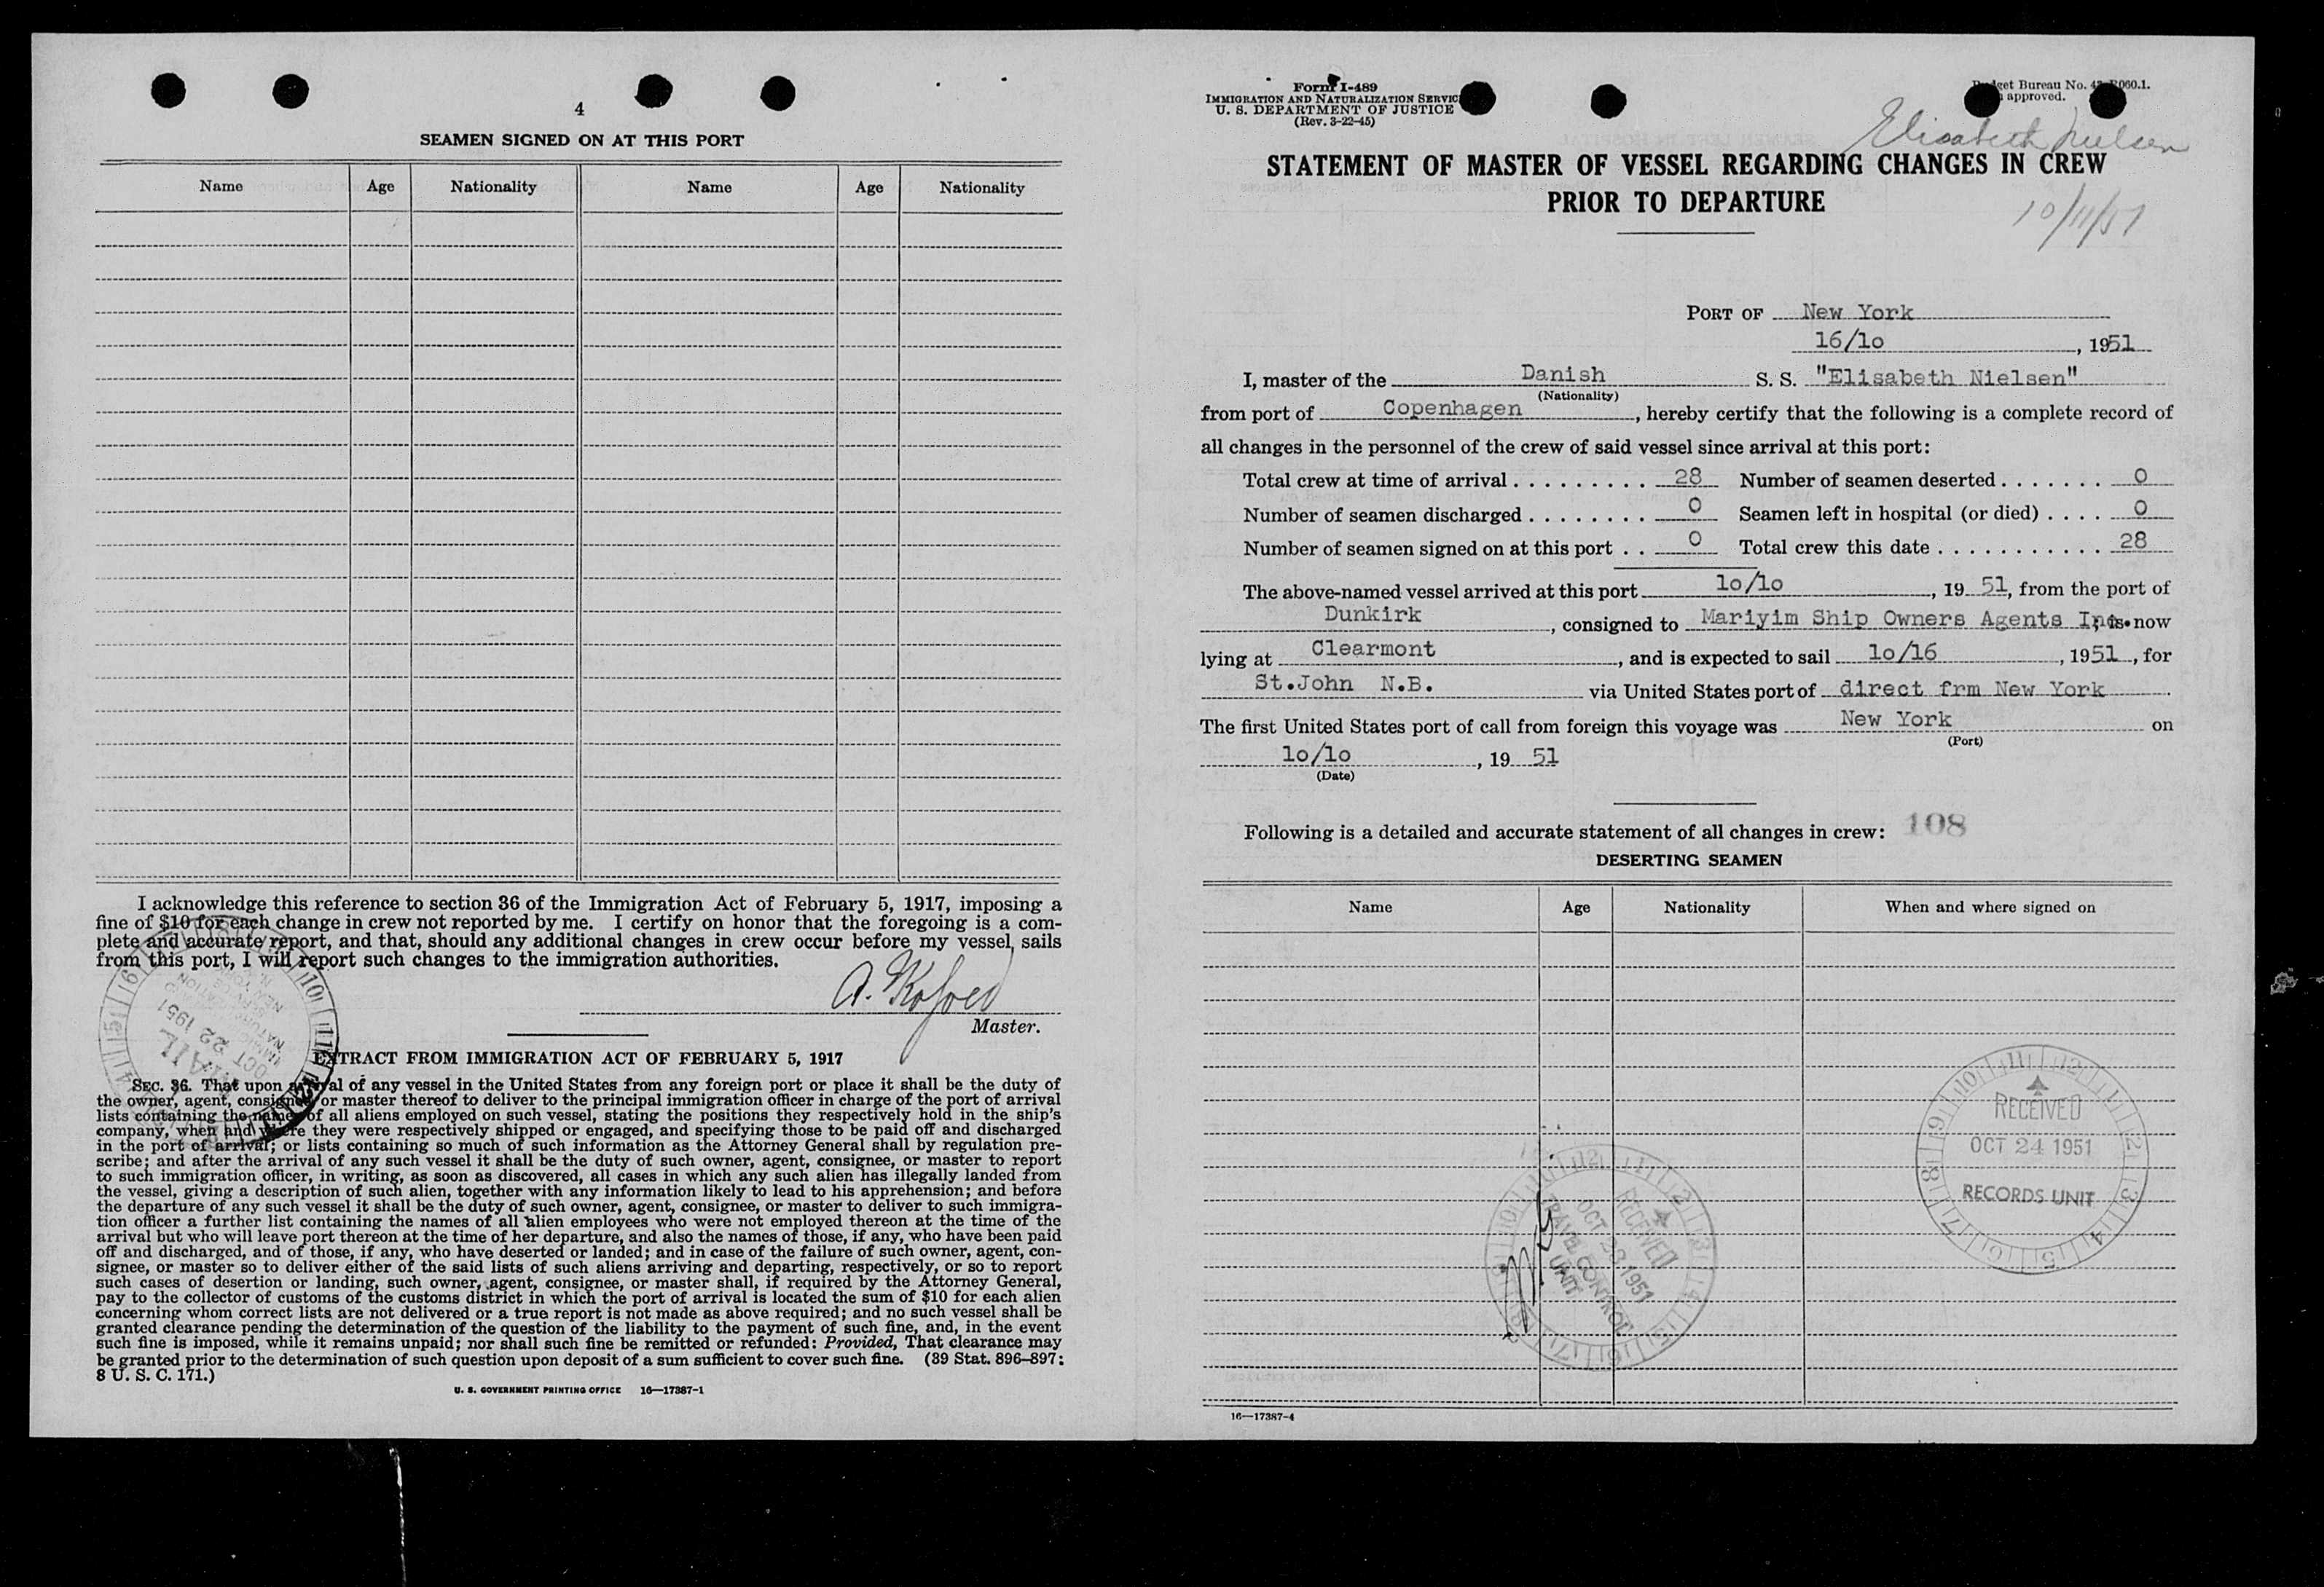 4
SEAMEN SIGNED ON AT THIS PORT
Name Age Nationality Name Age Nationality
I acknowledge this reference to section 36 of the Immigration Act of February 5, 1917, imposing a
fine of $10 for each change in crew not reported by me. I certify on honor that the foregoing is a com-
plete and accurate report, and that, should any additional changes in crew occur before my vessel sails
from this port, I will report such changes to the immigration authorities.
Master.
OCT 22 1951
EXTRACT FROM IMMIGRATION ACT OF FEBRUARY 5, 1917
SEC. 36. That upon arrival of any vessel in the United States from any foreign port or place it shall be the duty of
the owner, agent, consignee, or master thereof to deliver to the principal immigration officer in charge of the port of arrival
lists containing the names of all aliens employed on such vessel, stating the positions they respectively hold in the ship's
company, when and where they were respectively shipped or engaged, and specifying those to be paid off and discharged
in the port of arrival; or lists containing so much of such information as the Attorney General shall by regulation pre-
scribe; and after the arrival of any such vessel it shall be the duty of such owner, agent, consignee, or master to report
to such immigration officer, in writing, as soon as discovered, all cases in which any such alien has illegally landed from
the vessel, giving a description of such alien, together with any information likely to lead to his apprehension; and before
the departure of any such vessel it shall be the duty of such owner, agent, consignee, or master to deliver to such immigra-
tion officer a further list containing the names of all alien employees who were not employed thereon at the time of the
arrival but who will leave port thereon at the time of her departure, and also the names of those, if any, who have been paid
off and discharged, and of those, if any, who have deserted or landed; and in case of the failure of such owner, agent, con-
signee, or master so to deliver either of the said lists of such aliens arriving and departing, respectively, or so to report
such cases of desertion or landing, such owner, agent, consignee, or master shall, if required by the Attorney General,
pay to the collector of customs of the customs district in which the port of arrival is located the sum of $10 for each alien
concerning whom correct lists are not delivered or a true report is not made as above required; and no such vessel shall be
granted clearance pending the determination of the question of the liability to the payment of such fine, and, in the event
such fine is imposed, while it remains unpaid; nor shall such fine be remitted or refunded: Provided, That clearance may
be granted prior to the determination of such question upon deposit of a sum sufficient to cover such fine. (39 Stat. 896–897;
8 U. S. C. 171.)
U. S. GOVERNMENT PRINTING OFFICE 16—17387-1
Form I-489
IMMIGRATION AND NATURALIZATION SERVIC
U. S. DEPARTMENT OF JUSTICE
(Rev. 3-22-45)
get Bureau No. 060.1.
approved.
Elisabeth Nielsen
STATEMENT OF MASTER OF VESSEL REGARDING CHANGES IN CREW
PRIOR TO DEPARTURE
10/11/51
PORT OF New York
16/10, 1951
I, master of the Danish S. S. "Elisabeth Nielsen"
(Nationality)
from port of Copenhagen, hereby certify that the following is a complete record of
all changes in the personnel of the crew of said vessel since arrival at this port:
Total crew at time of arrival 28 Number of seamen deserted 0
Number of seamen discharged 0 Seamen left in hospital (or died) 0
Number of seamen signed on at this port 0 Total crew this date 28
The above-named vessel arrived at this port 10/10, 19 51, from the port of
Dunkirk, consigned to Mariyim Ship Owners Agents Inc., is now
lying at Clearmont, and is expected to sail 10/16, 1951, for
St.John N.B. via United States port of direct frm New York
The first United States port of call from foreign this voyage was New York on
(Port)
10/10, 19 51
(Date)
Following is a detailed and accurate statement of all changes in crew: 108
DESERTING SEAMEN
Name Age Nationality When and where signed on
RECEIVED
OCT 24 1951
RECORDS UNIT
RECEIVED
OCT 23 1951
TRAVEL CONTROL
UNIT
16—17387-4